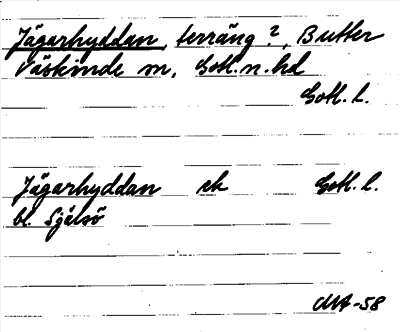 Jägarhyddan, terräng?, Butler
Väskinde sn, Gotl.n.hd
Gotl. l.
Jägarhyddan ek Gotl. l.
bl. Själsö
MA-58